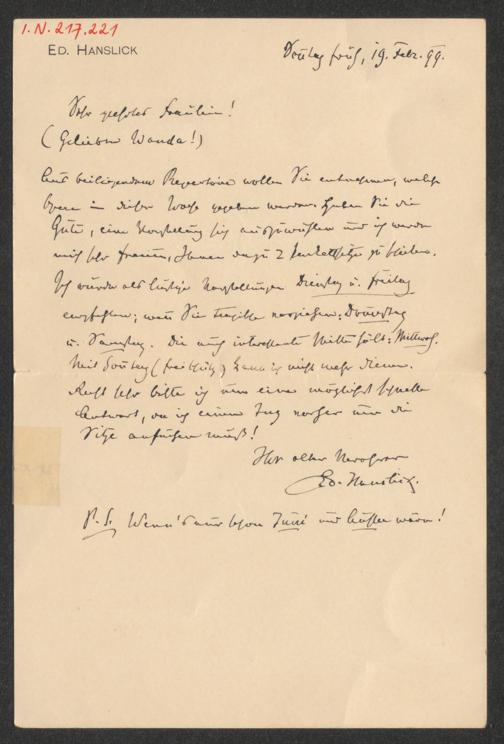 I.N. 217.221
ED. HANSLICK
Sontag früh, 19. Febr. 99.
Sehr geehrtes Fräulein!
(Geliebte Wanda!)
Aus beiliegendem Repertoire wollen Sie entnehmen, welche
Opern in dieser Woche gegeben werden. Haben Sie die
Güte, eine Vorstellung sich auszuwählen und ich werde
mich sehr freuen, Ihnen dazu 2 Parketsitze zu bieten.
Ich würde als lustige Vorstellungen Dienstag u. Freitag
empfehlen; wenn Sie Tragische vorziehen: Donnerstag
u. Samstag. Die interessante Mitte hält: Mittwoch.
Mit Sontag (Freischütz) kann ich nicht mehr dienen.
Recht sehr bitte ich um eine möglichst schnelle
Antwort, da ich einen Tag vorher um die
Sitze ansuchen muß!
Ihr alter Verehrer
Ed. Hanslick.
P.S. Wenn's nur schon Juni und wärn!